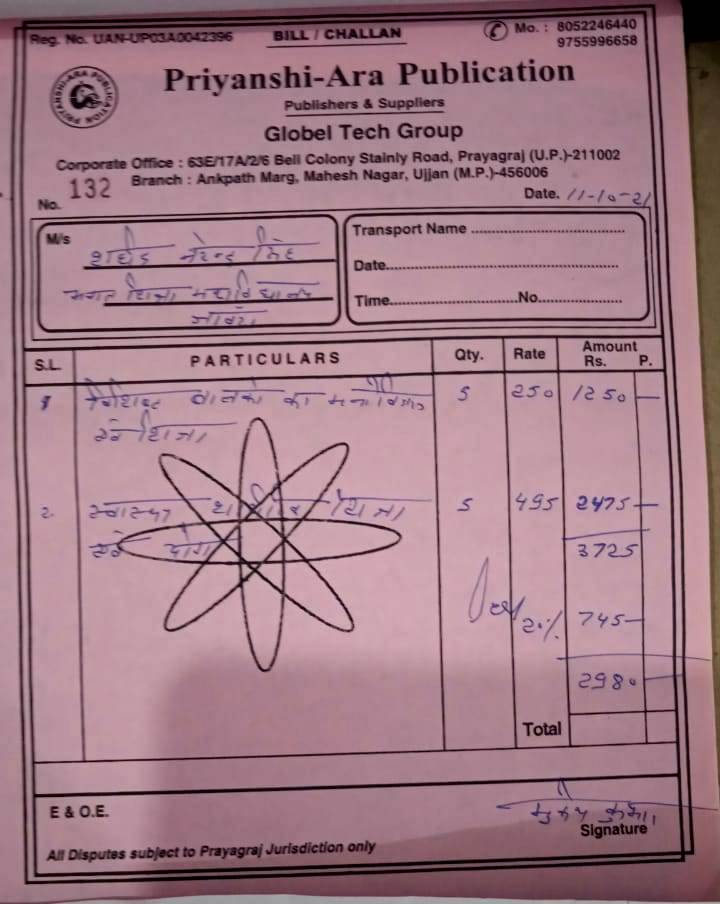 Reg. No. UAN-UP03A0042396 BILL / CHALLAN Mo. : 8052246440
9755996658
PRIYANSHI-ARA PUBLICATION
Priyanshi-Ara Publication
Publishers & Suppliers
Globel Tech Group
Corporate Office : 63E/17A/2/6 Bell Colony Stainly Road, Prayagraj (U.P.)-211002
Branch : Ankpath Marg, Mahesh Nagar, Ujjan (M.P.)-456006
No. 132 Date. 11-10-21
M/s शहीद नरेन्द्र सिंह
भगत शिक्षा महाविद्यालय
Transport Name
Date
Time No.
S.L. PARTICULARS Qty. Rate Amount
Rs. P.
1 विशिष्ट बालकों का 5 250 1250 —
एवं शिक्षा
2 स्वास्थ्य शारीरिक शिक्षा 5 495 2475 —
एवं योग
3725
20% 745 —
2980 —
Total
E & O.E.
Signature
All Disputes subject to Prayagraj Jurisdiction only